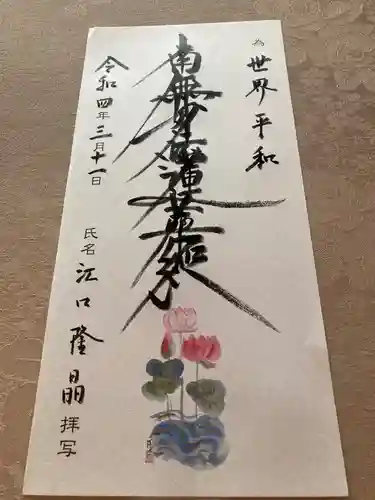 為 世界平和
南無妙法蓮華経
令和四年三月十一日
氏名 江口隆晶 拝写